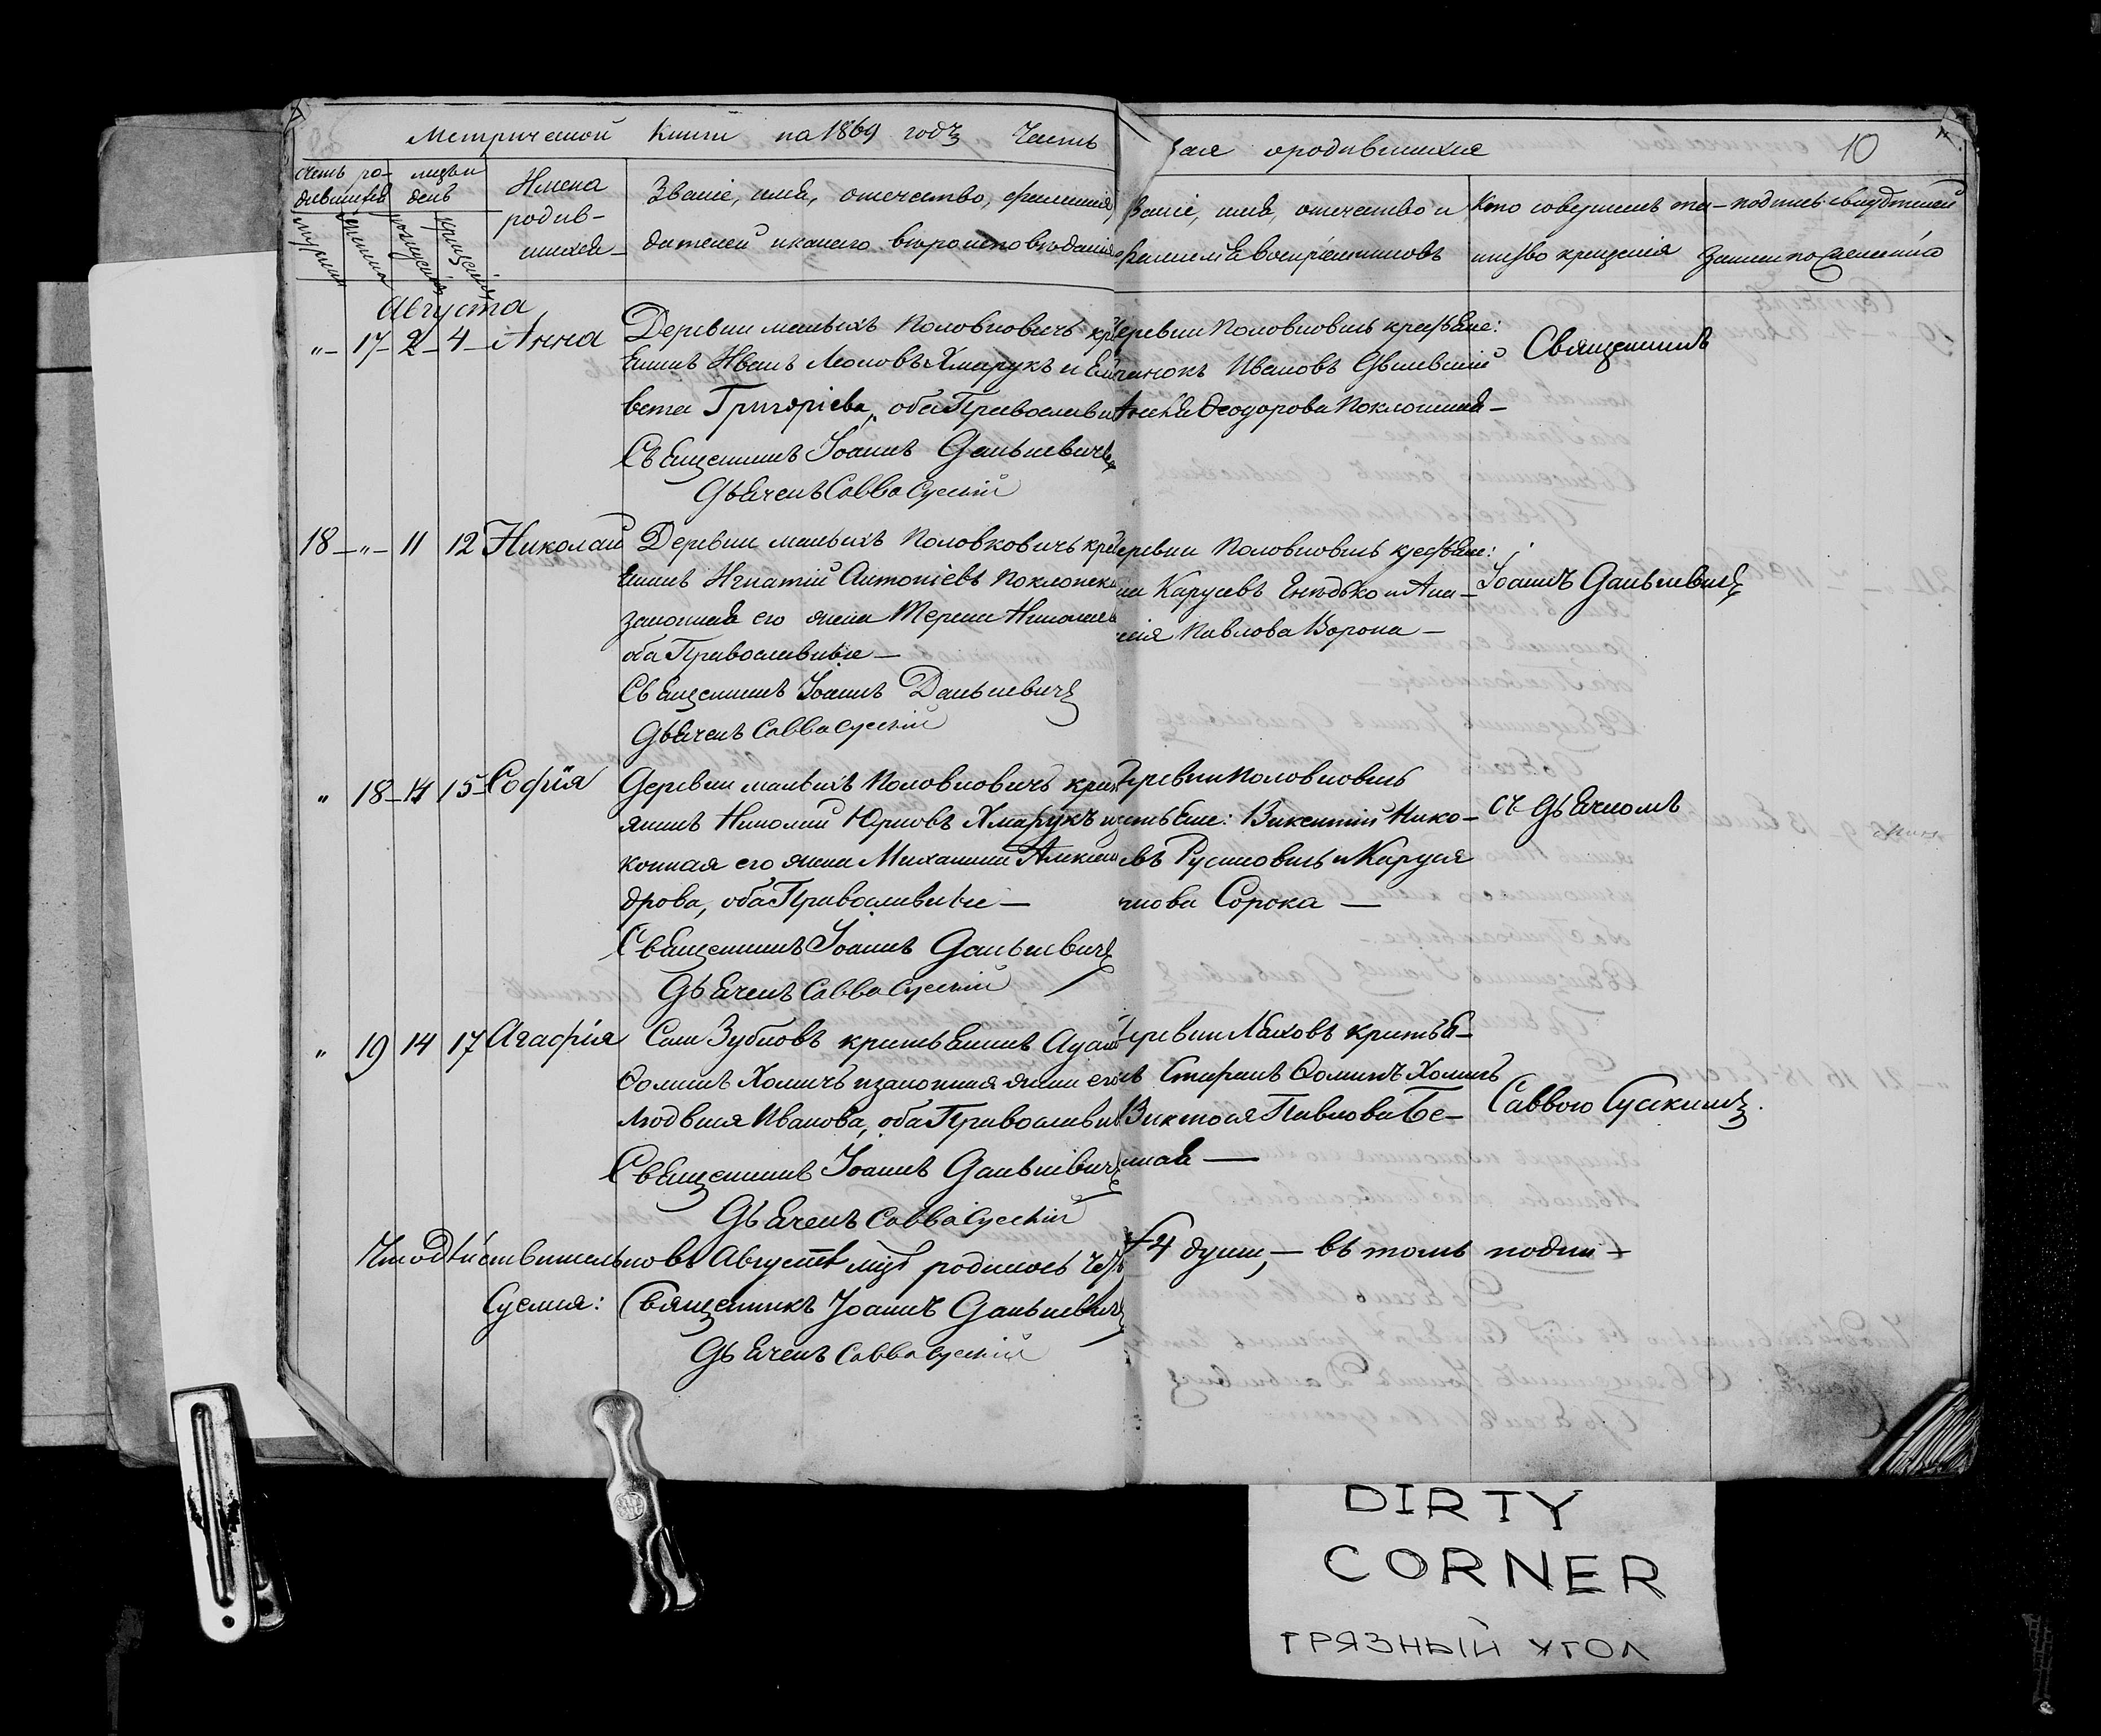 Метрической книги на 1869 годъ Часть
ая о родившихся 10
Счетъ ро- мѣсяцъ и
дившихся день
Имена
родив-
шихся
Званіе, имя, отечество, фамилія
дителей и какого вѣроисповѣданія
мужеска женска рожденія крещенія
Званіе, имя, отечество и
фамилія воспріемниковъ
Кто совершилъ та-
инство крещенія
подпись свидѣтелей
записи по желанію
Августа
"- 17- 2- 4- Анна
Деревни малыхъ Половковичъ кре
янинъ Иванъ Хмарукъ и Ели
вета Григоріева, оба Православны
Священникъ Іоаннъ Данькевичъ
Дьячекъ Савва Сускій
еревни Половковичъ крестьяне:
Ивановъ
Ѳеодорова Поклонская-
Священникъ
18-"- 11 12 Николай
Деревни малыхъ Половковичъ кре
янинъ Игнатій Антоніевъ Поклонск
законная его жена Николаев
оба Православные-
Священникъ Іоаннъ Данькевичъ
Дьячекъ Савва Сускій
еревни Половковичъ крестьяне:
и Ана-
сія Павлова Ворона-
Іоаннъ Данькевичъ
" 18- 14 15- Софія
Деревни малыхъ Половковичъ крес
янинъ Николай Юрковъ Хмарукъ и з
конная его жена Михалина Алексан
дрова, оба Православные-
Священникъ Іоаннъ Данькевичъ
Дьячекъ Савва Сускій
Деревни Половковичъ
стьяне: Викентій Нико-
въ Русиновичъ и Каруся
нова Сорока-
съ дьячкомъ
" 19 14 17 Агафія
Села Зубковъ крестьянинъ Адам
Ѳоминъ Хомичъ и законная жена его
Людвися Иванова, оба Православны
Священникъ Іоаннъ Данькевичъ
Дьячекъ Савва Сускій
еревни Ляховъ крестья-
Стефанъ Ѳоминъ Хомичъ
Викторія Павлова Бе-
ная-
Саввою Сускимъ.
Что дѣйствительно въ Августѣ мцѣ родилось че 4 души,- въ томъ подпи-
Суемся: Священникъ Іоаннъ Данькевичъ
Дьячекъ Савва Сускій
DIRTY
CORNER
ГРЯЗНЫЙ УГОЛ